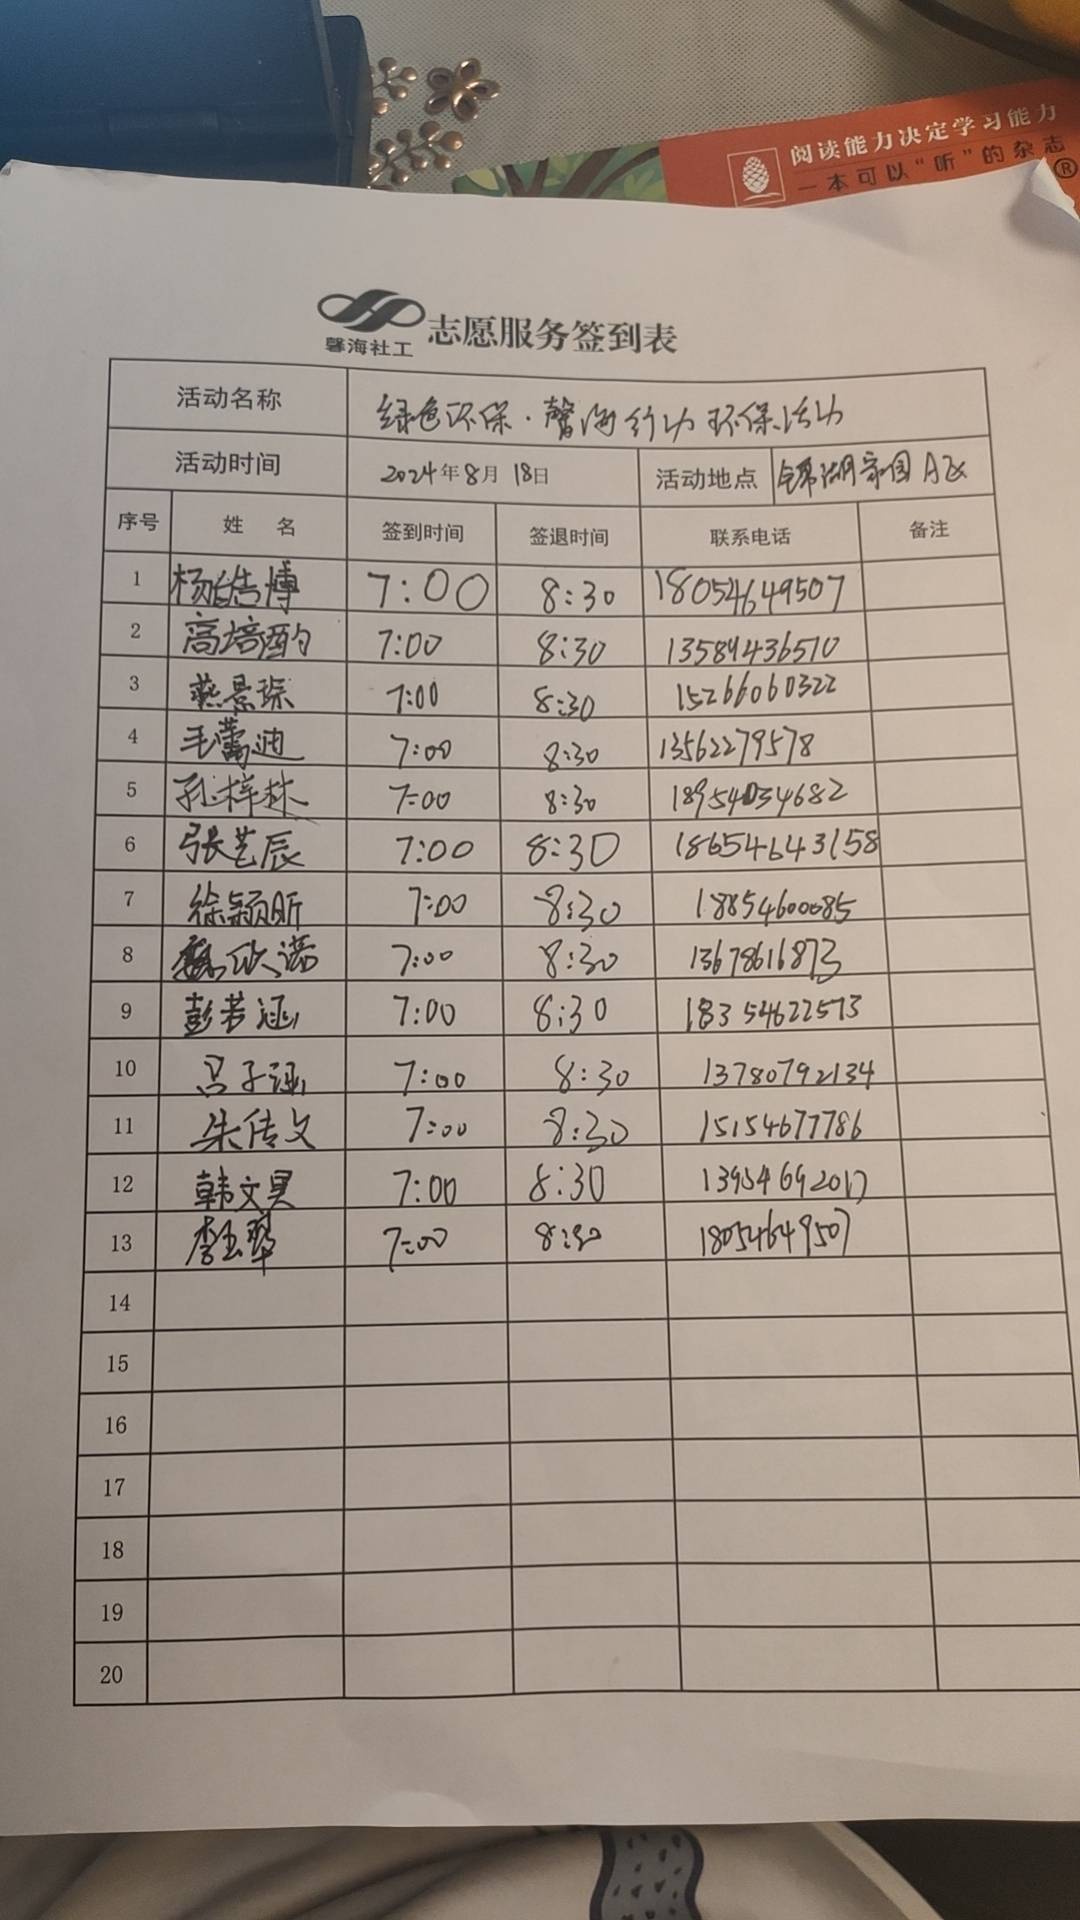 阅读能力决定学习能力
一本可以“听”的杂志®
馨海社工 志愿服务签到表
活动名称 绿色环保·馨海行动 环保活动
活动时间 2024年8月18日 活动地点 锦湖家园A区
序号 姓 名 签到时间 签退时间 联系电话 备注
1 杨皓博 7:00 8:30 18054649507
2 高培酌 7:00 8:30 13589436510
3 燕景琛 7:00 8:30 15266060322
4 毛蕾迪 7:00 8:30 13562279578
5 孔梓林 7:00 8:30 18954034682
6 张艺辰 7:00 8:30 18654643158
7 徐颖昕 7:00 8:30 18854600085
8 魏欣诺 7:00 8:30 13678616873
9 彭若涵 7:00 8:30 18354622573
10 吕子涵 7:00 8:30 13780792134
11 朱传文 7:00 8:30 15154677786
12 韩文昊 7:00 8:30 13954692017
13 李玉翠 7:00 8:30 18054649507
14
15
16
17
18
19
20